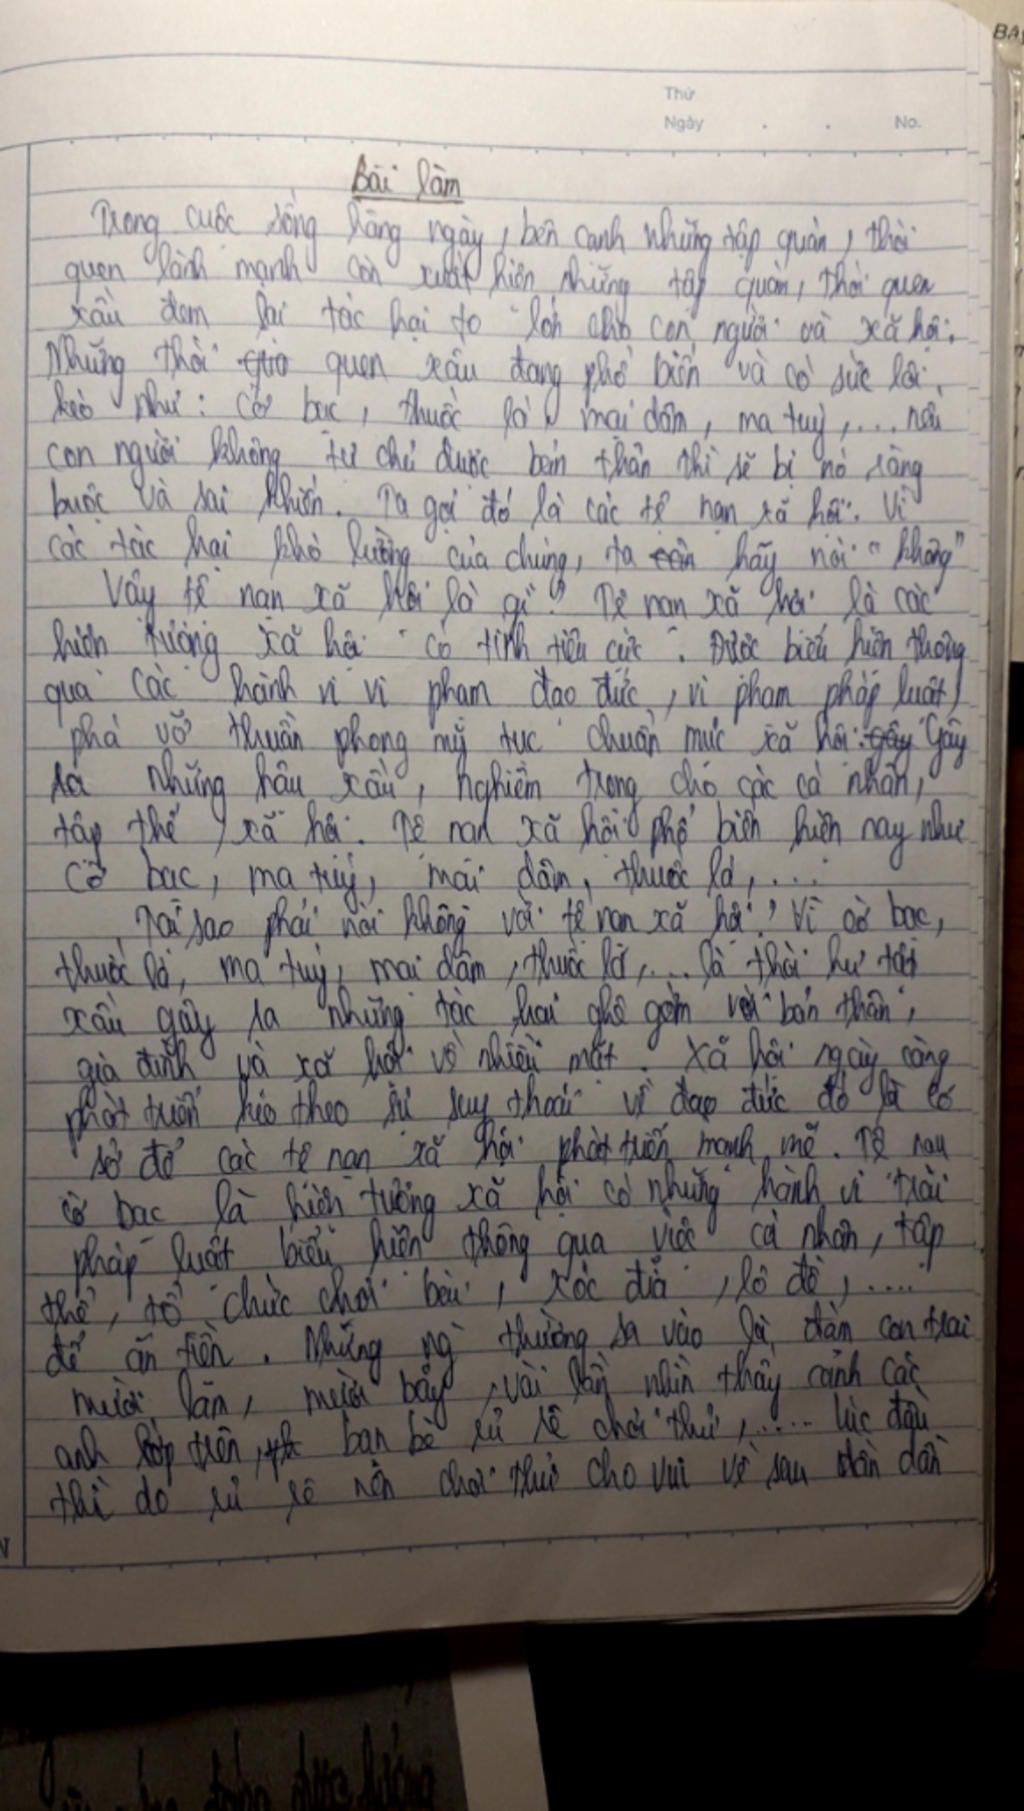 Thứ
Ngày . . No.
Bài làm
Trong cuộc sống hằng ngày, bên cạnh những tập quán, thói
quen lành mạnh còn xuất hiện những tập quán, thói quen
xấu đem lại tác hại to lớn cho con người và xã hội.
Những thói quen xấu đang phổ biến và có sức lôi
kéo như: Cờ bạc, thuốc lá, mại dâm, ma tuý,... nếu
con người không tự chủ được bản thân thì sẽ bị nó ràng
buộc và sai khiến. Ta gọi đó là các tệ nạn xã hội. Vì
các tác hại khó lường của chúng, ta hãy nói "không"
Vậy tệ nạn xã hội là gì? Tệ nạn xã hội là các
hiện tượng xã hội có tính tiêu cực. Được biểu hiện thông
qua các hành vi vi phạm đạo đức, vi phạm pháp luật,
phá vỡ thuần phong mỹ tục chuẩn mực xã hội. Gây
ra những hậu xấu, nghiêm trọng cho các cá nhân,
tập thể, xã hội. Tệ nạn xã hội phổ biến hiện nay như
cờ bạc, ma tuý, mại dâm, thuốc lá,....
Tại sao phải nói không với tệ nạn xã hội? Vì cờ bạc,
thuốc lá, ma tuý, mại dâm, thuốc lá,.... là thói hư tật
xấu gây ra những tác hại ghê gớm với bản thân,
gia đình và xã hội về nhiều mặt. Xã hội ngày càng
phát triển kéo theo sự suy thoái về đạo đức đó là cơ
sở để các tệ nạn xã hội phát triển mạnh mẽ. Tệ nạn
cờ bạc là hiện tượng xã hội có những hành vi trái
pháp luật biểu hiện thông qua việc cá nhân, tập
thể, tổ chức chơi bài, xóc đĩa, lô đề,.....
để ăn tiền. Những ng` thường sa vào là đàn con trai
mười lăm, mười bảy, vài lần nhìn thấy cảnh các
anh lớp trên, bạn bè rủ rê chơi thử,..... lúc đầu
thì do rủ rê nên chơi thử cho vui về sau dần dần